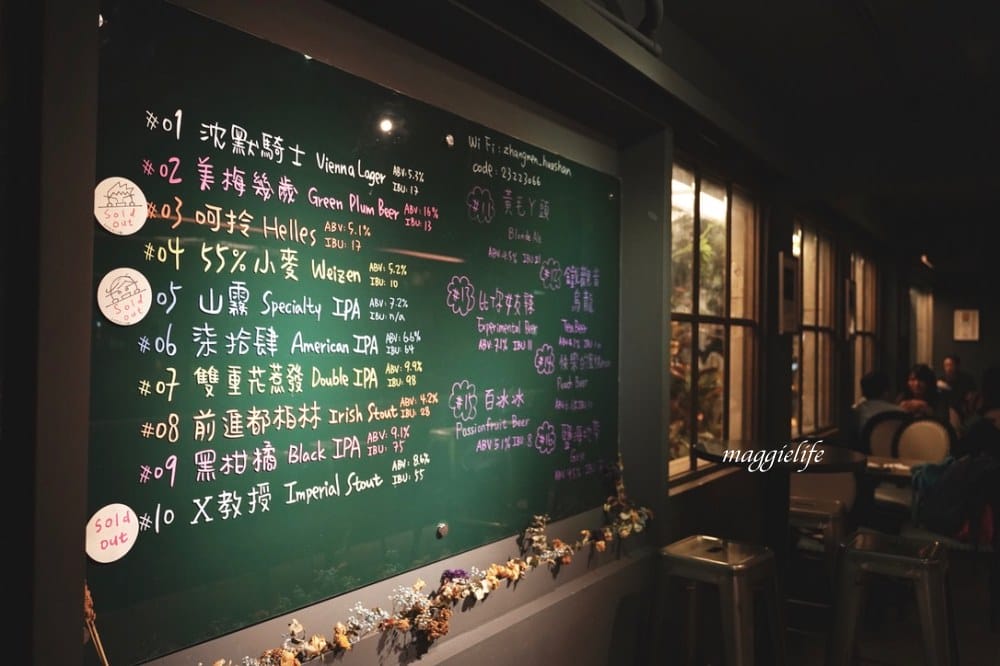 #01 沈默騎士 Vienna Lager ABV: 5.3% IBU: 17
#02 美梅幾歲 Green Plum Beer ABV: 16% IBU: 13
Sold out
#03 呵拎 Helles ABV: 5.1% IBU: 17
#04 55%小麥 Weizen ABV: 5.2% IBU: 10
Sold out
#05 山霧 Specialty IPA ABV: 7.2% IBU: n/a
#06 柒拾肆 American IPA ABV: 6.6% IBU: 64
#07 雙重花惹發 Double IPA ABV: 9.9% IBU: 98
#08 前進都柏林 Irish Stout ABV: 4.2% IBU: 28
#09 黑柑橘 Black IPA ABV: 9.1% IBU: 75
Sold out
#10 X教授 Imperial Stout ABV: 8.6% IBU: 55
Wi Fi: zhangmen_huashan
code: 23223066
#11 黃毛丫頭
Blonde Ale
#12
烏龍
Tea Beer
#13
Experimental Beer
ABV 7.1% IBU 11
#14
Peach Beer
#15 百冰冰
Passionfruit Beer
ABV 5.1% IBU 8
#16
maggielife